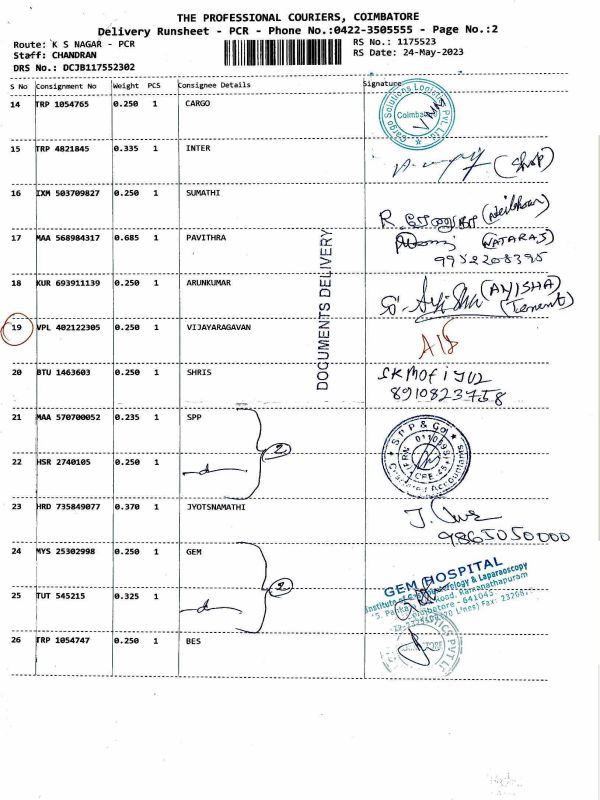 THE PROFESSIONAL COURIERS, COIMBATORE
Delivery Runsheet - PCR - Phone No.:0422-3505555 - Page No.:2
Route: K S NAGAR - PCR
RS No.: 1175523
Staff: CHANDRAN
RS Date: 24-May-2023
DRS No.: DCJB117552302
S No Consignment No Weight PCS Consignee Details Signature
14 TRP 1054765 0.250 1 CARGO
Cargo Solutions Logistics Pvt Ltd
Coimbatore
15 TRP 4821845 0.335 1 INTER
(Shop)
16 IXM 503709827 0.250 1 SUMATHI
R.
17 MAA 568984317 0.685 1 PAVITHRA
(NATARAJ)
9952208395
DOCUMENTS DELIVERY
18 KUR 693911139 0.250 1 ARUNKUMAR
(ANISHA)
(Tenent)
19 VPL 402122305 0.250 1 VIJAYARAGAVAN
20 BTU 1463603 0.250 1 SHRIS
8910823758
21 MAA 570700052 0.235 1 SPP
2
SPP & Co
Chartered Accountants
22 HSR 2740105 0.250 1
23 HRD 735849077 0.370 1 JYOTSNAMATHI
J.
9865050000
24 MYS 25302998 0.250 1 GEM
2
GEM HOSPITAL
Institute of Gastroenterology & Laparaoscopy
Road, Ramanathapuram
Coimbatore - 641045
25 TUT 545215 0.325 1
26 TRP 1054747 0.250 1 BES